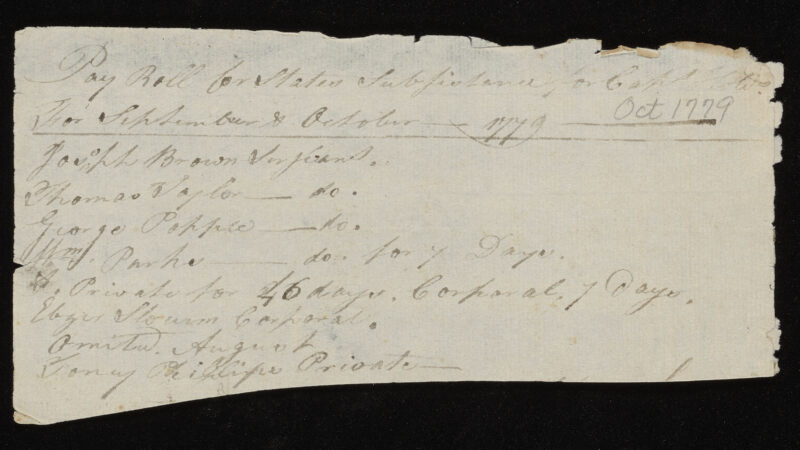 Pay Roll for States Subsistance for Capt
For September & October — 1779 — Oct 1779
Joseph Brown Serjeant.
Thomas Taylor — do.
George Poppie — do.
Wm. Parks — do. for 7 Days.
Private for 46 days. Corporal. 7 Days.
Corporal.
Omitted. August
Phillips Private —